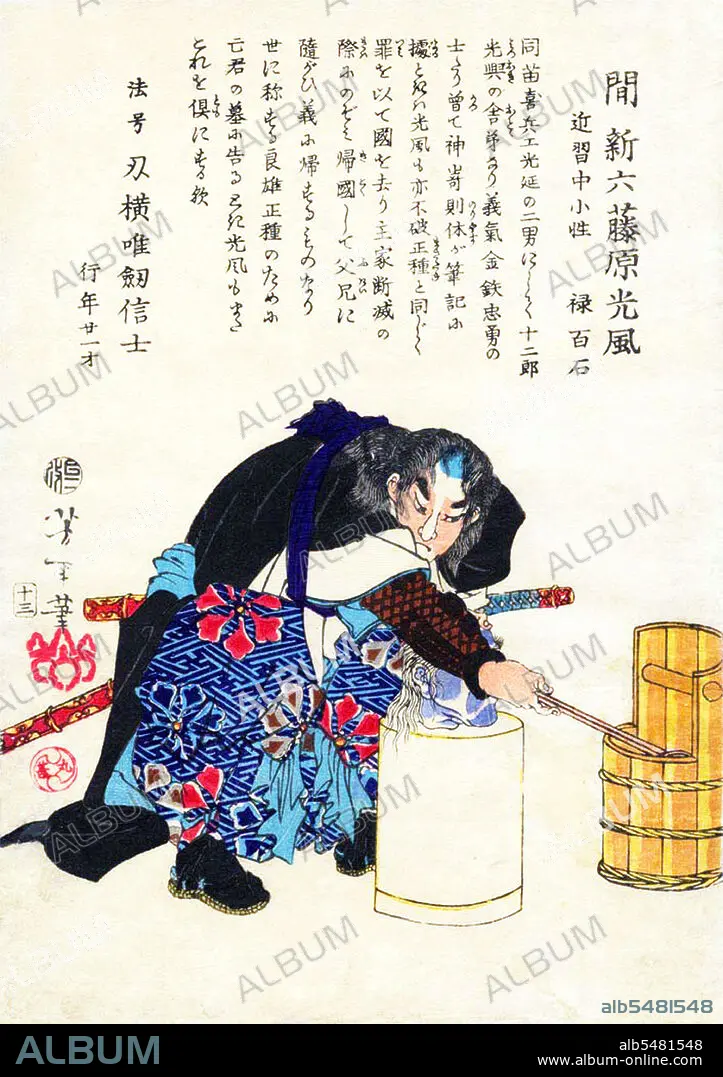 間新六藤原光風
近習中小性 禄百石
同苗喜兵エ光延の二男にして十二郎
光興の舎弟なり義氣金鉄忠勇の
士たり曽て神嵜則休が筆記に
據ときハ光風も亦不破正種と同じく
罪を以て國を去り主家断滅の
際にのぞミ帰國して父兄に
隨がひ義に帰するものたり
世に称する良雄正種のために
亡君の墓に告る
これを倶にする歟
法号 刃横唯劔信士
行年廿一才
芳年筆
十三
ALBUM
alb5481548
ALBUM
alb5481548
www.album-online.com